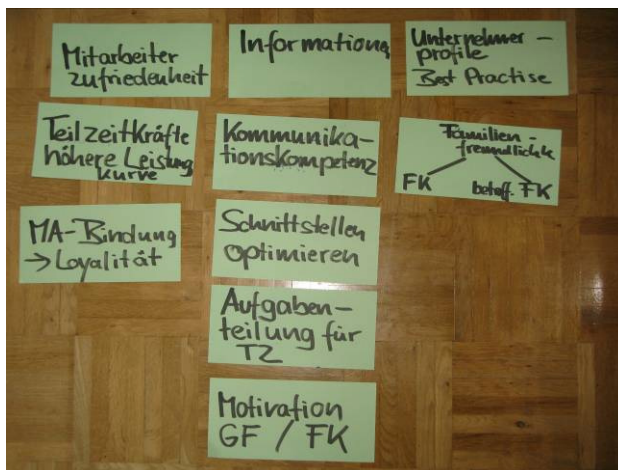 Mitarbeiter
zufriedenheit
Teilzeitkräfte
höhere Leistung
kurve
MA-Bindung
→ Loyalität
Information
Kommunika-
tionskompetenz
Schnittstellen
optimieren
Aufgaben-
teilung für
TZ
Motivation
GF / FK
Unternehmer-
profile
Best Practise
Familien-
freundlichk
FK betroff. FK